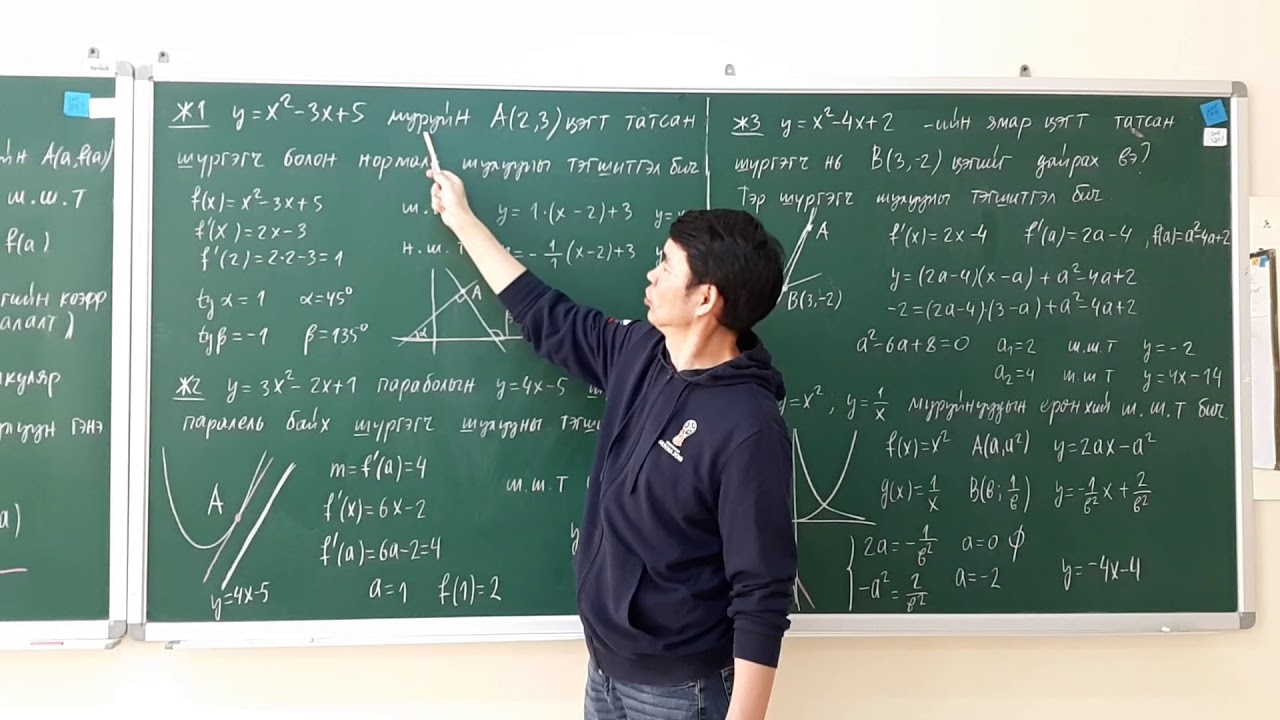 ийн A(a, f(a))
м.ш.т
f(a)
гийн коэфф
алалт)
куляр
гэнэ
a)
Ж1 y=x²-3x+5 муруйн A(2,3) цэгт татсан
шүргэгч болон нормаль шулууны тэгшитгэл бич
f(x)=x²-3x+5
f'(x)=2x-3
f'(2)=2·2-3=1
ш.
y=1·(x-2)+3
н.ш.т
=-1/1(x-2)+3
tg α=1 α=45°
tg β=-1 β=135°
A
α
Ж2 y=3x²-2x+1 параболын y=4x-5
паралель байх шүргэгч шулууны тэгш
m=f'(a)=4
ш.ш.т
f'(x)=6x-2
f'(a)=6a-2=4
a=1 f(1)=2
A
y=4x-5
Ж3 y=x²-4x+2 -ийн ямар цэгт татсан
шүргэгч нь B(3,-2) цэгийг дайрах вэ?
Тэр шүргэгч шулууны тэгшитгэл бич.
A
B(3,-2)
f'(x)=2x-4 f'(a)=2a-4, f(a)=a²-4a+2
y=(2a-4)(x-a)+a²-4a+2
-2=(2a-4)·(3-a)+a²-4a+2
a²-6a+8=0 a₁=2 ш.ш.т y=-2
a₂=4 ш.ш.т y=4x-14
y=x²; y=1/x муруйнуудын ерөнхий ш.ш.т бич.
f(x)=x² A(a,a²) y=2ax-a²
g(x)=1/x B(в; 1/в) y=-1/в² x+2/в²
2a=-1/в² a=0 ∅
-a²=2/в² a=-2
y=-4x-4